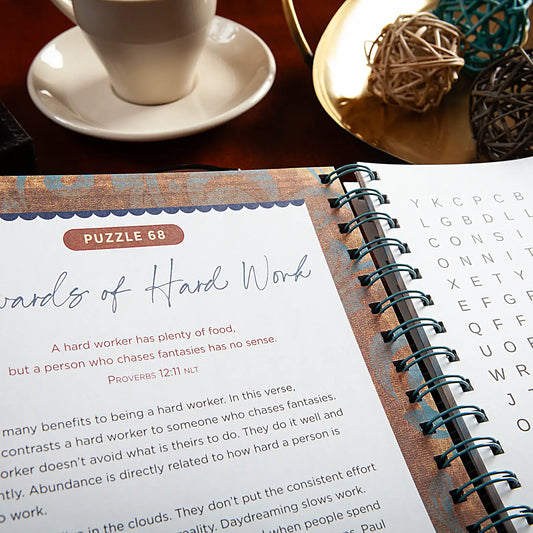 PUZZLE 68
of Hard Work
A hard worker has plenty of food,
but a person who chases fantasies has no sense.
PROVERBS 12:11 NLT
many benefits to being a hard worker. In this verse,
contrasts a hard worker to someone who chases fantasies.
doesn't avoid what is theirs to do. They do it well and
Abundance is directly related to how hard a person is
work.
in the clouds. They don't put the consistent effort
Daydreaming slows work.
when people spend
Paul
Y K C P C B
L G B D L
C O N S I
O N N I T
X E T Y
E F G F
Q F F
U O F
W R
J
O